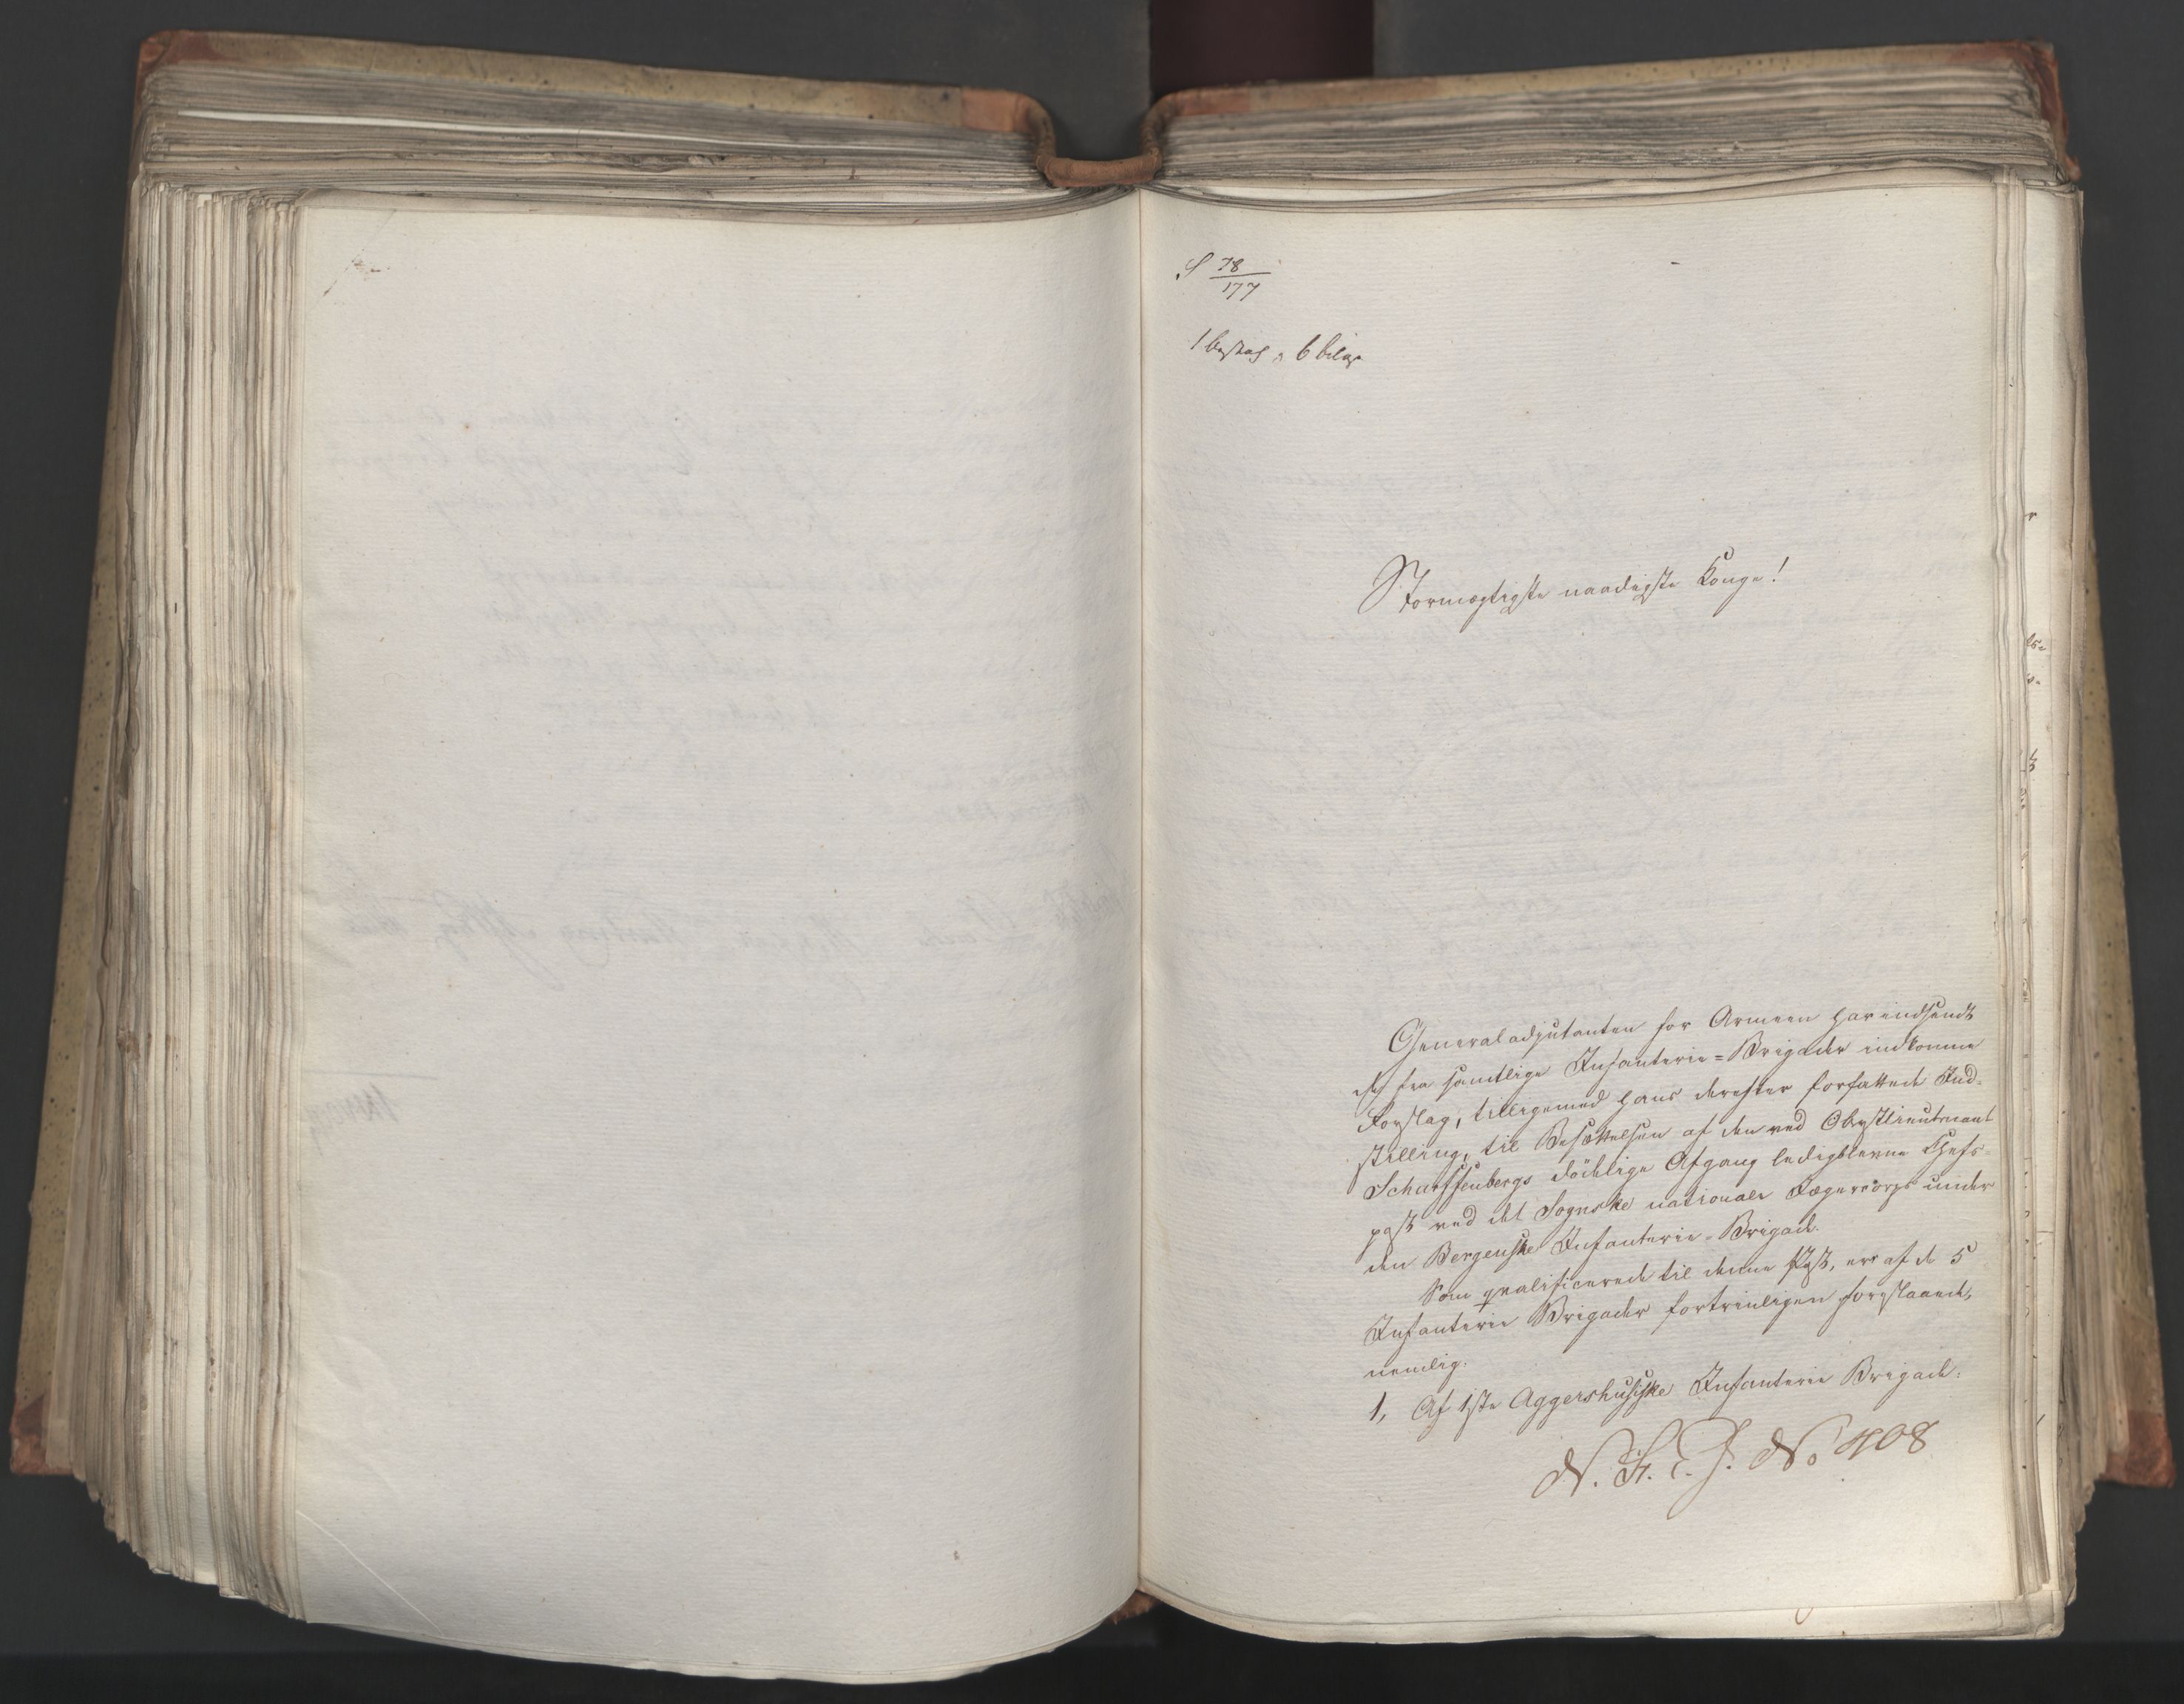 S 78/177
1 Omslag, 6 bilag
Stormægtigste naadigste Konge!
Generaladjutanten for Armeen har indsendt
de fra samtlige Infanterie=Brigader indkomne
Forslag, tilligemed hans derefter forfattede Ind-
stilling, til Besættelsen af den ved Obristlieutenant
Scharffenbergs dödelige Afgang ledigblevne Chefs-
post ved det Sognske nationale Jægercorps under
den Bergenske Infanterie-Brigade.
Som qvalificerede til denne Post, ere af de 5
Infanterie Brigader fortrinligen foreslaaede,
nemlig:
1, Af 1ste Aggershusiske Infanterie Brigade:
N. F. E. J. No 408